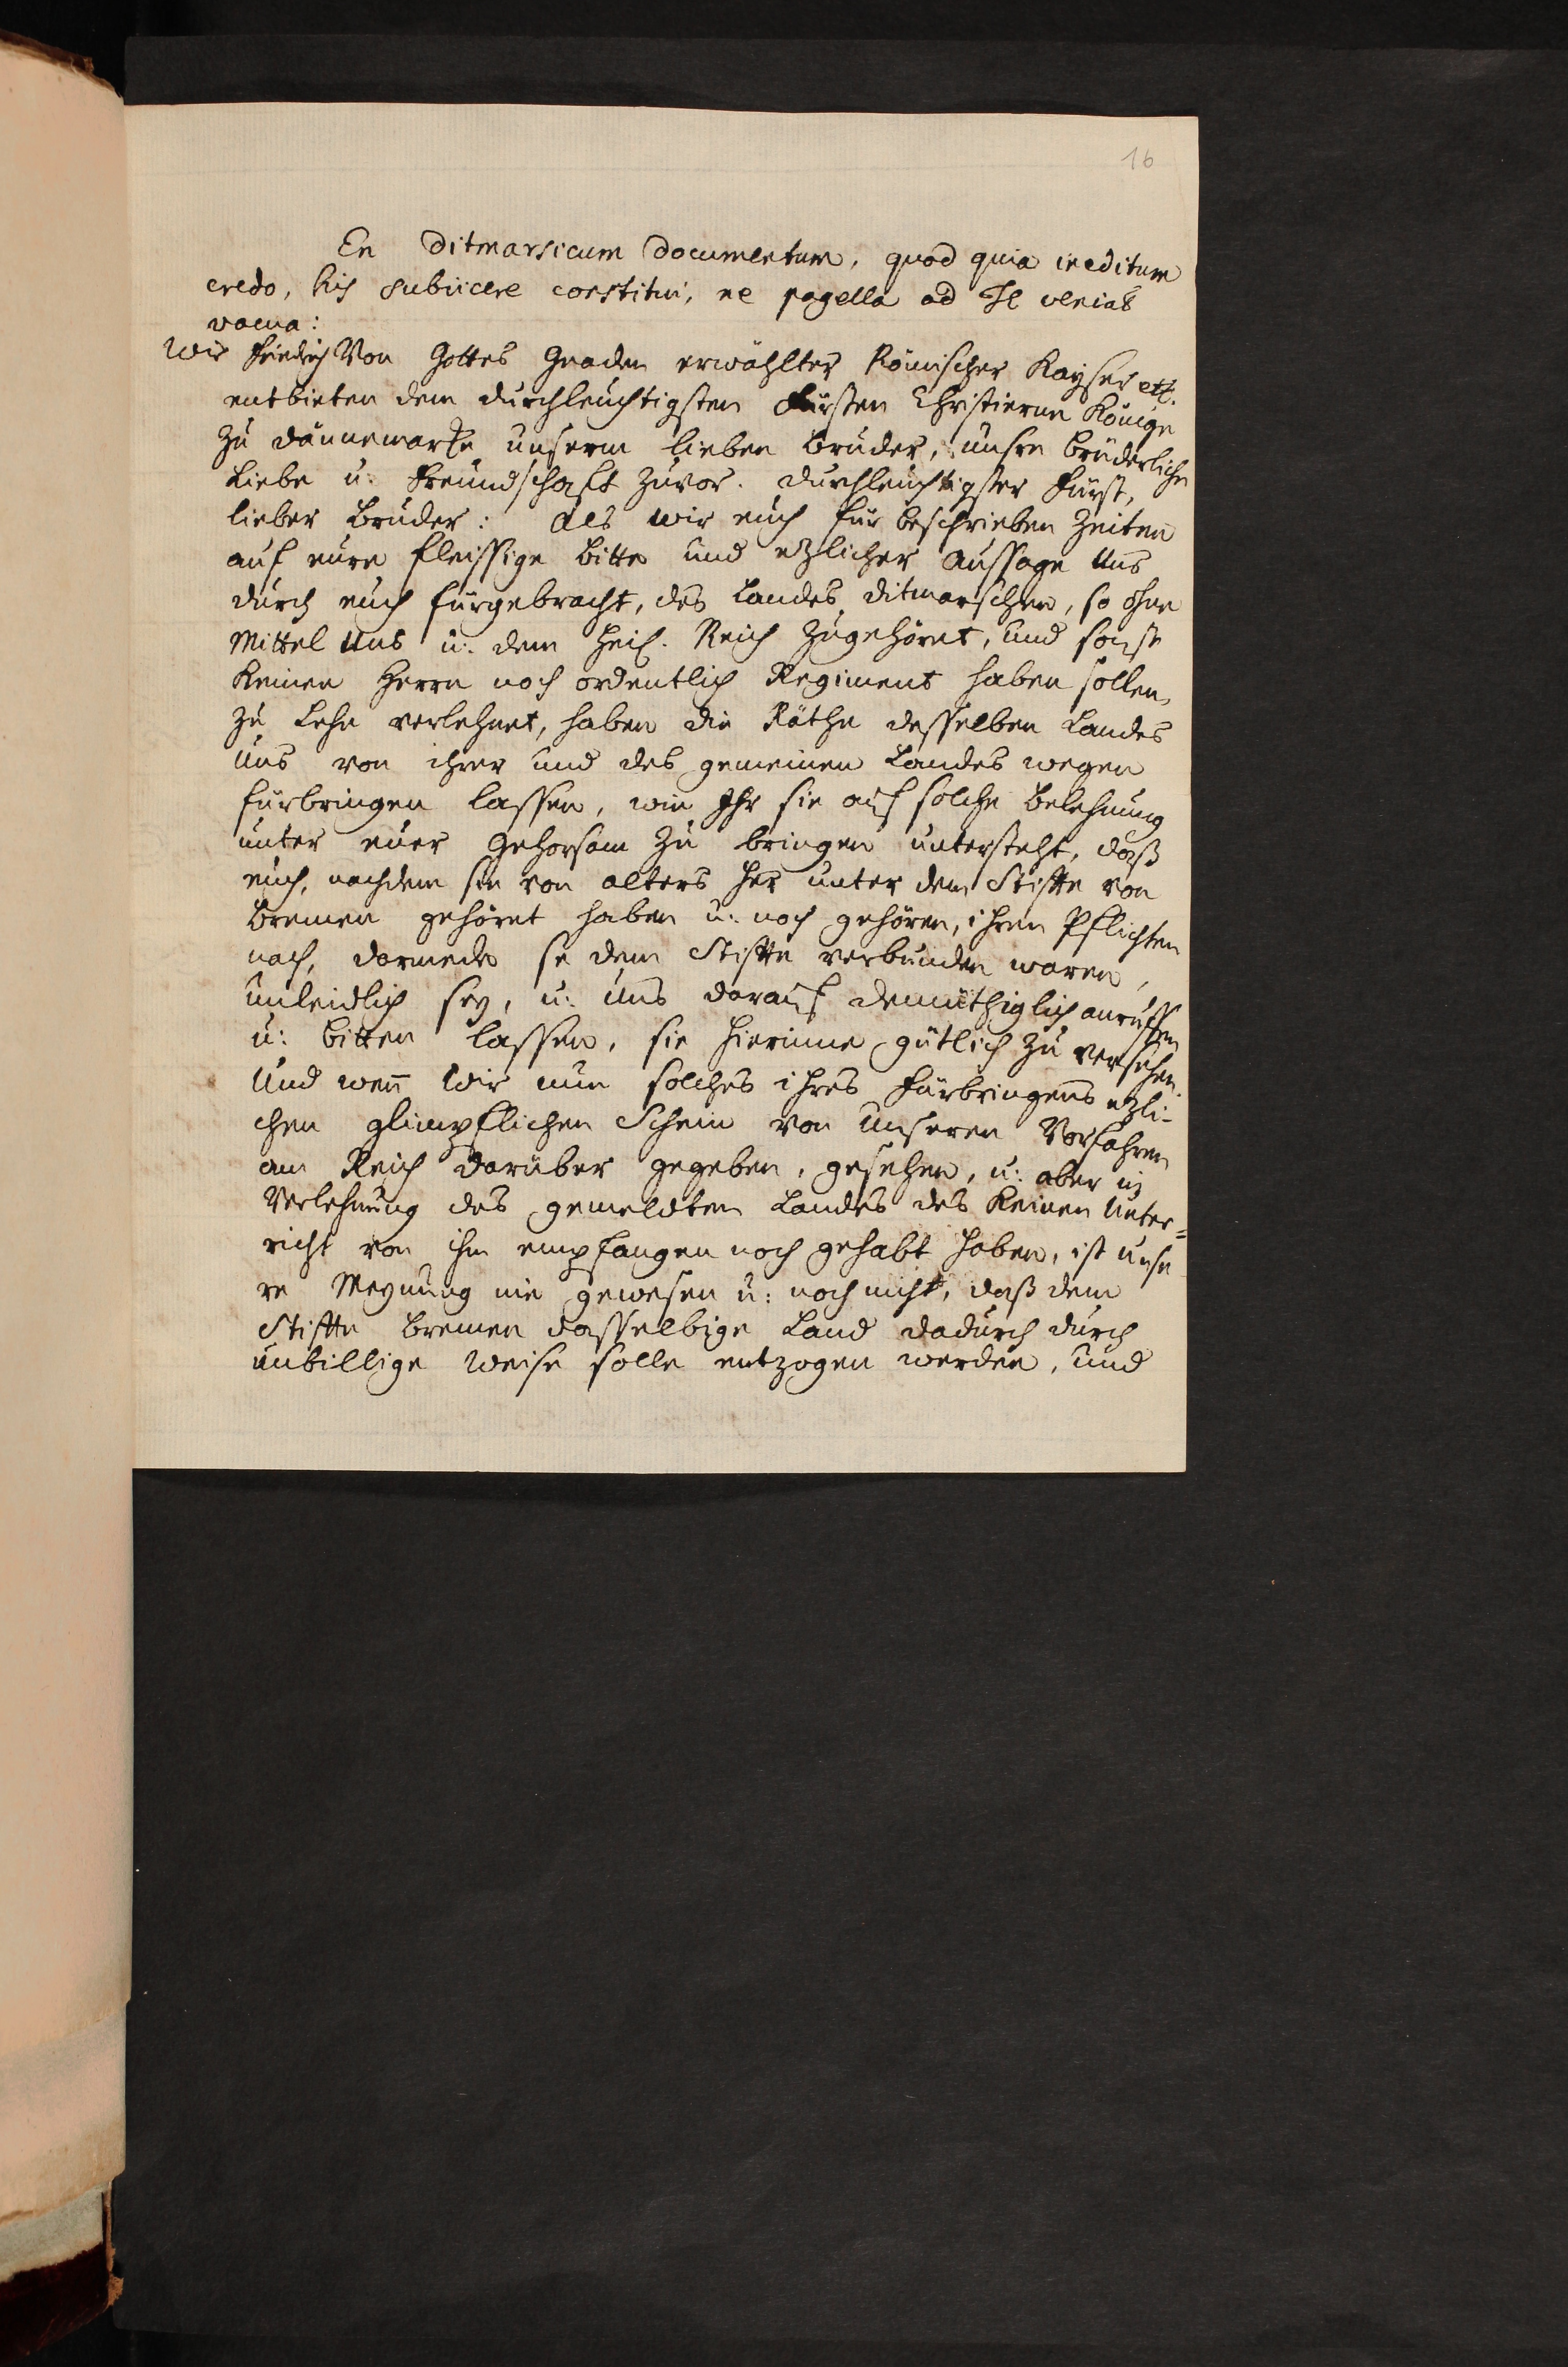 16
En Ditmarsicum Documentum, quod quia ineditum
credo, his subiicere constitui, ne pagella ad Te veniat
vacua:
Wir Friedrich Von Gottes Gnaden erwählter Römischer Kayser etc.
entbieten dem durchleuchtigsten Fürsten Christiernn Könige
zu Dännemarke unserm lieben Bruder, unsre brüderliche
Liebe u. Freundschaft zuvor. Durchleuchtigster Fürst,
lieber Bruder: Als wir euch für beschrieben Zeiten
auf eure fleissige Bitte und etzlicher Aussage Uns
durch euch fürgebracht, des Landes Ditmarschen, so ohne
Mittel Uns u. dem Heil. Reich zugehöret, und sonst
keinen Herrn noch ordentlich Regiment haben sollen,
zu Lehn verlehnet, haben die Räthe desselben Landes
Uns von ihrer und des gemeinen Landes wegen
fürbringen lassen, wie Ihr sie auf solche Belehnung
unter euer Gehorsam zu bringen untersteht, daß
euch, nachdem sie von alters her unter dem Stifte von
Bremen gehöret haben u. noch gehören, ihren Pflichten
nach, darmede se dem Stifte verbunden waren,
unleidlich sey, u. Uns darauf demüthiglich anruffen
u: bitten lassen, sie hierinne gütlich zu versehen.
Und wen̄ Wir nun solches ihres fürbringens etzli-
chen glimpflichen Schein von Unseren Vorfahren
am Reich darüber gegeben, gesehen, u: aber in
Verlehnung des gemeldten Landes des keinen Unter=
richt von ihn empfangen noch gehabt haben, ist unse
re Meynung nie gewesen u: noch nicht, daß dem
Stifte Bremen dasselbige Land dadurch durch
unbillige Weise solle entzogen werden, und